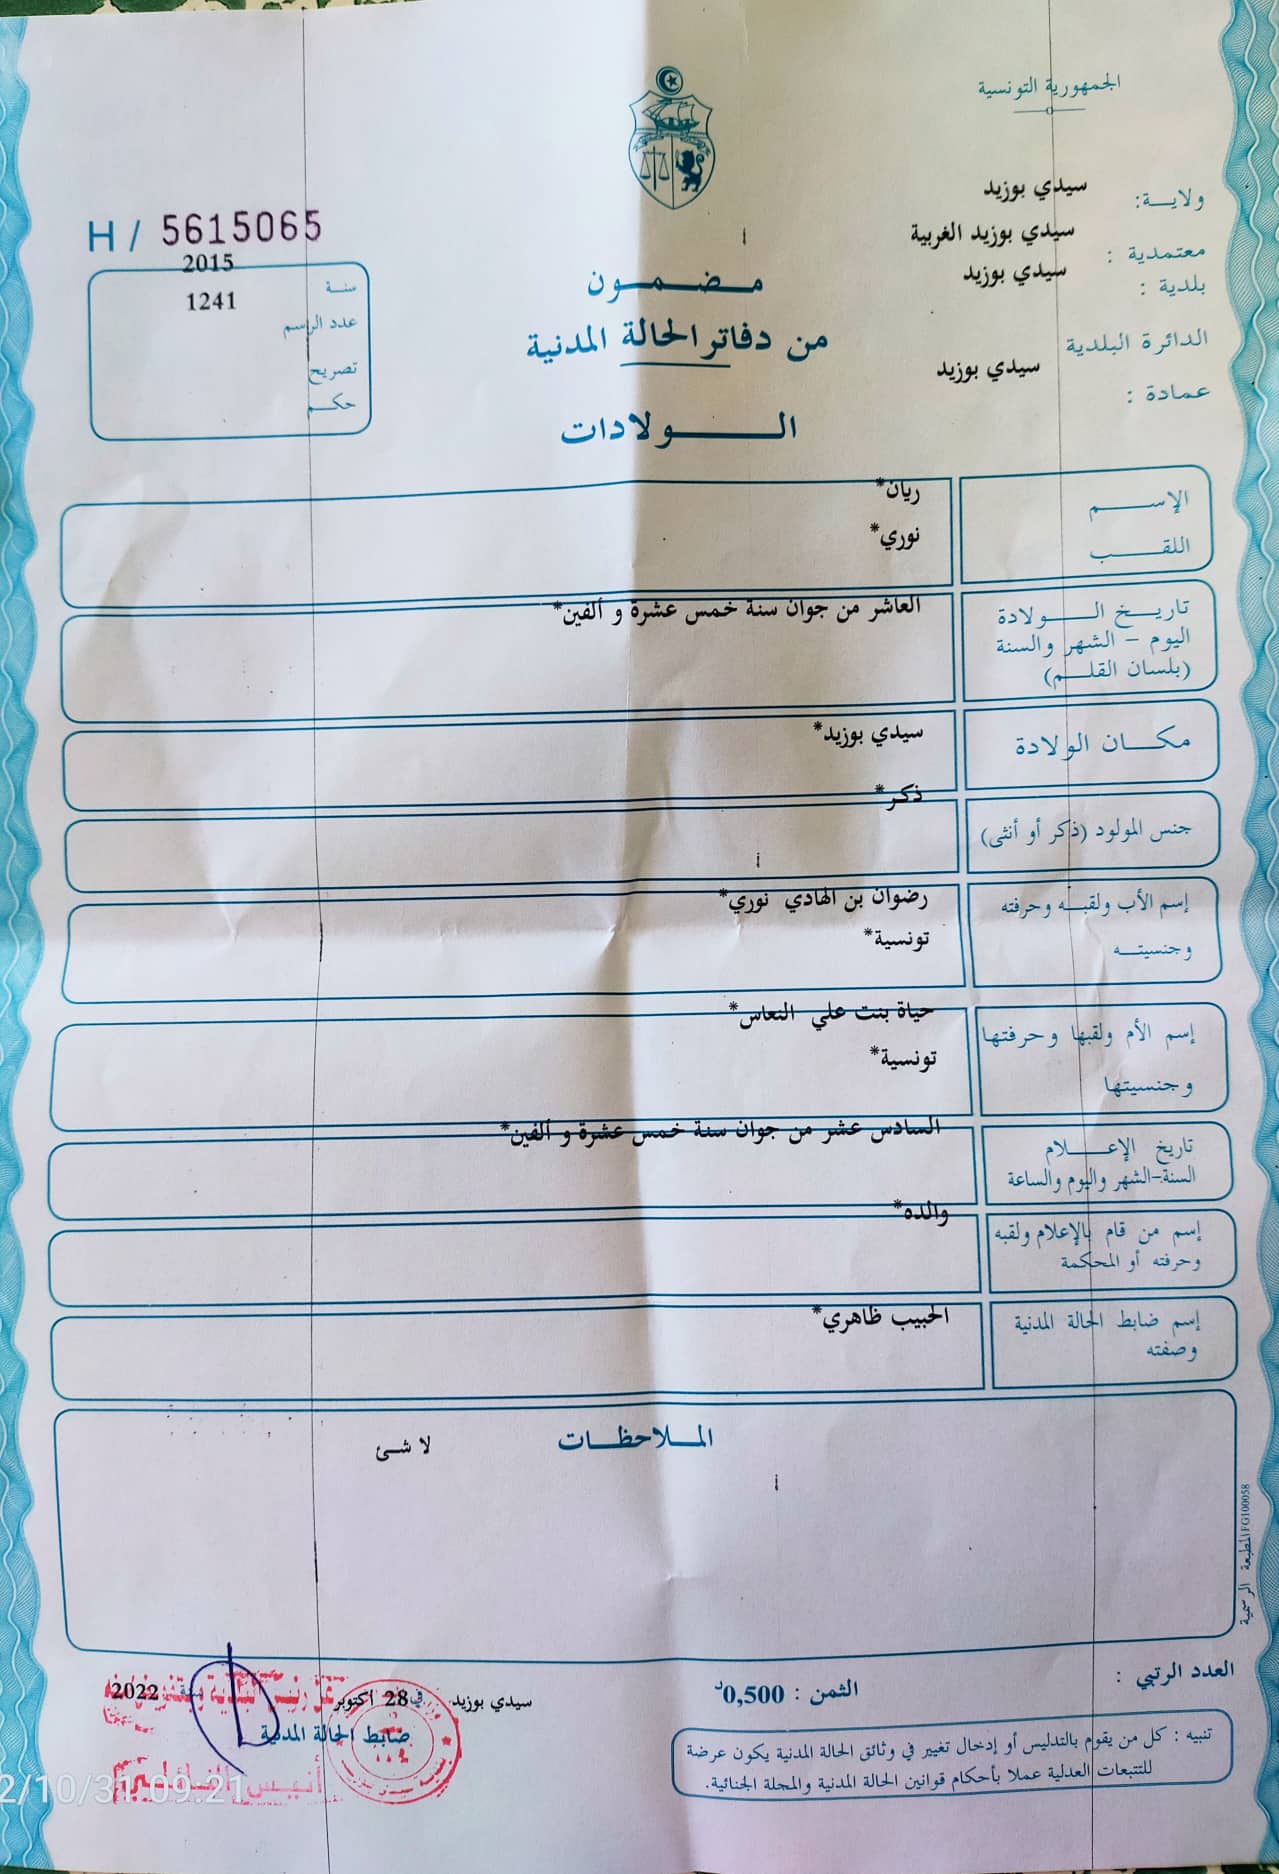 الجمهورية التونسية
ولاية: سيدي بوزيد
معتمدية : سيدي بوزيد الغربية
بلدية : سيدي بوزيد
الدائرة البلدية
عمادة : سيدي بوزيد
H / 5615065
سنة 2015
عدد الرسم 1241
تصريح
حكم
مضمون
من دفاتر الحالة المدنية
الولادات
الإسم ريان*
اللقب نوري*
تاريخ الولادة العاشر من جوان سنة خمس عشرة و ألفين*
اليوم - الشهر والسنة
(بلسان القلم)
مكان الولادة سيدي بوزيد*
جنس المولود (ذكر أو أنثى) ذكر*
إسم الأب ولقبه وحرفته رضوان بن الهادي نوري*
وجنسيته تونسية*
إسم الأم ولقبها وحرفتها حياة بنت علي النعاس*
وجنسيتها تونسية*
تاريخ الإعلام السادس عشر من جوان سنة خمس عشرة و ألفين*
السنة-الشهر واليوم والساعة
إسم من قام بالإعلام ولقبه والده*
وحرفته أو المحكمة
إسم ضابط الحالة المدنية الحبيب ظاهري*
وصفته
الملاحظات لا شئ
المطبعة الرسمية FG100058
العدد الرتبي :
الثمن : 0,500د
سيدي بوزيد في 28 أكتوبر سنة 2022
ضابط الحالة المدنية
تنبيه : كل من يقوم بالتدليس أو إدخال تغيير في وثائق الحالة المدنية يكون عرضة
للتتبعات العدلية عملا بأحكام قوانين الحالة المدنية والمجلة الجنائية.
2/10/31 09:21